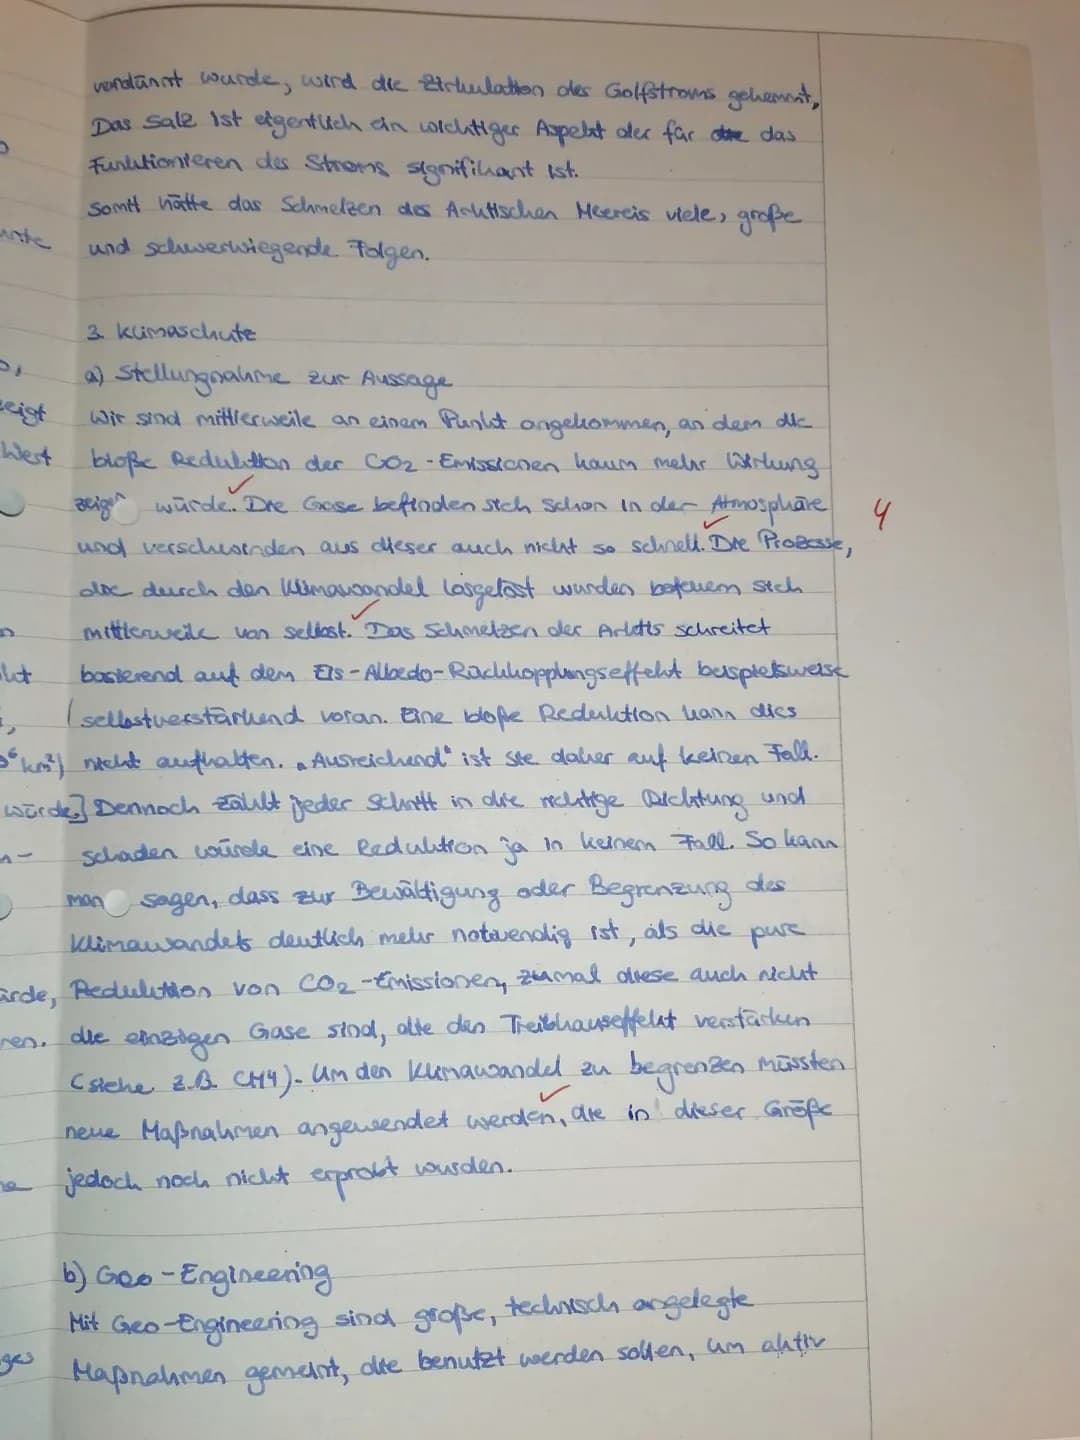 verdünnt wurde, wird die Zirkulation des Golfstroms gehemmt,
Das Salz ist eigentlich ein wichtiger Aspekt der für das
Funktionieren des Stroms signifikant ist.
somit hätte das Schmelzen des Arktischen Meereis viele, große
und schwerwiegende Folgen.
3. Klimaschutz
a) Stellungnahme zur Aussage
zeigt Wir sind mittlerweile an einem Punkt angekommen, an dem die
West bloße Reduktion der CO2-Emissionen kaum mehr Wirkung
zeigen würde. Die Gase befinden sich schon in der Atmosphäre 4
und verschwinden aus dieser auch nicht so schnell. Die Prozesse,
die durch den Klimawandel losgelöst wurden befeuern sich
mittlerweile von selbst. Das Schmelzen der Arktis schreitet
basierend auf dem Eis-Albedo-Rückkopplungseffekt beispielsweise
selbstverstärkend voran. Eine bloße Reduktion kann dies
km²) nicht aufhalten. „Ausreichend" ist sie daher auf keinen Fall.
würde.] Dennoch zählt jeder Schritt in die richtige Richtung und
schaden würde eine Reduktion ja in keinem Fall. So kann
man sagen, dass zur Bewältigung oder Begrenzung des
Klimawandels deutlich mehr notwendig ist, als die pure
Reduktion von CO2-Emissionen, zumal diese auch nicht
die einzigen Gase sind, die den Treibhauseffekt verstärken
(siehe z.B. CH4). Um den Klimawandel zu begrenzen müssten
neue Maßnahmen angewendet werden, die in dieser Größe
jedoch noch nicht erprobt wurden.
b) Geo-Engineering
Mit Geo-Engineering sind große, technisch angelegte
Maßnahmen gemeint, die benutzt werden sollen, um aktiv